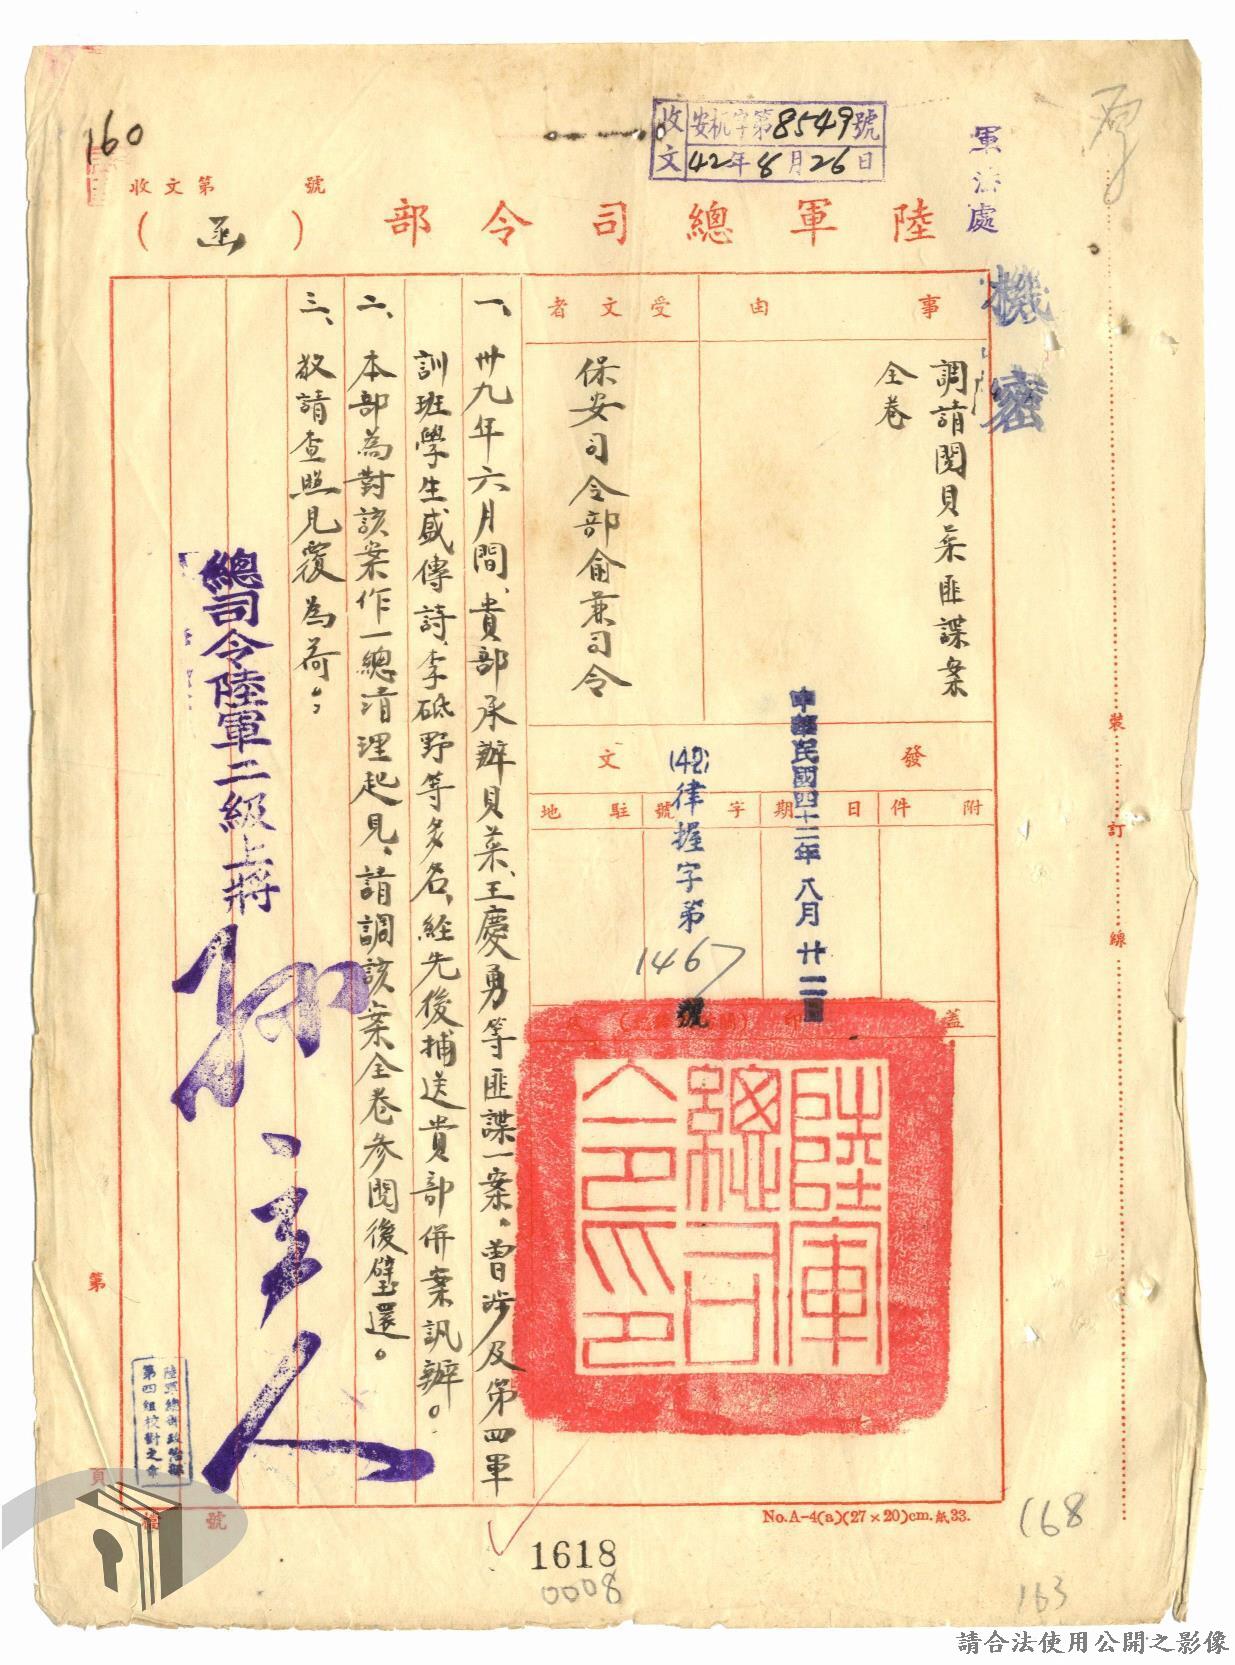 160
收文
安机字第8549號
42年8月26日
軍法處
機密
收文第 號
陸軍總司令部
(函)
事由
調請閱貝萊匪諜案
全卷
受文者
保安司令部俞兼司令
發文
附件
日期
中華民國四十二年八月廿二日
字號
(42)律握字第
1467
號
駐地
一、卅九年六月間、貴部承辦貝萊、王慶勇等匪諜一案。曾涉及第四軍
訓班學生盛傳詩、李砥野等多名、經先後捕送貴部併案訊辦。
二、本部為對該案作一總清理起見、請調該案全卷參閱後璧還。
三、敬請查照見覆為荷。
總司令陸軍二級上將
孫立人
陸軍總司令印
陸軍總部政治部
第四組校對之章
第
頁
檔 號
裝
訂
線
No.A-4(a)(27×20)cm.紙33.
1618
0008
168
163
請合法使用公開之影像